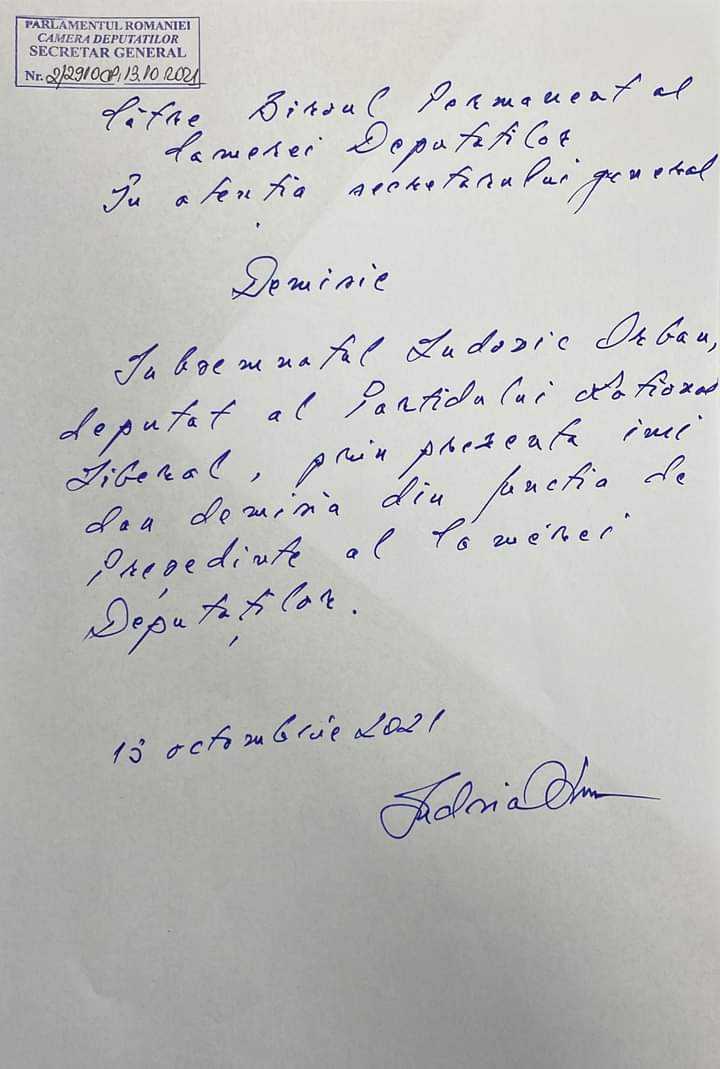 PARLAMENTUL ROMANIEI
CAMERA DEPUTATILOR
SECRETAR GENERAL
Nr. 2/2910CP, 13.10.2021
Către Biroul Permanent al
Camerei Deputatilor
În atentia secretarului general
Demisie
Subsemnatul Ludovic Orban,
deputat al Partidului National
Liberal, prin prezenta imi
dau demisia din functia de
Președinte al Camerei
Deputaților.
13 octombrie 2021
Ludovic Orban